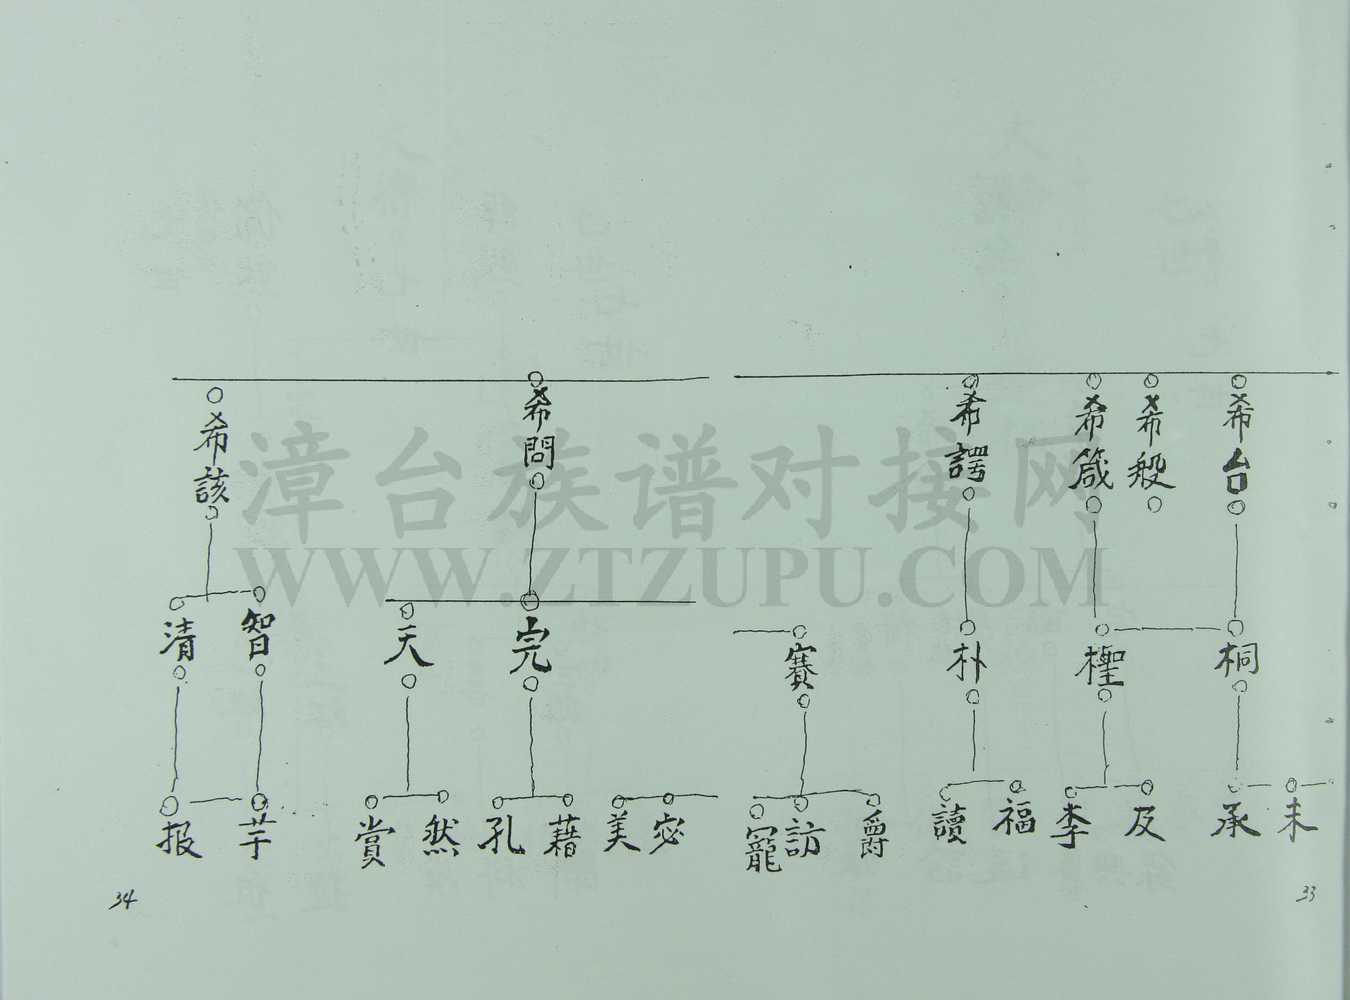 希台
希般
希箴
希諤
希問
希該
桐
檉
朴
賽
完
天
智
清
未
承
及
李
福
讀
爵
訪
寵
宓
美
藉
孔
然
賞
芋
报
33
34
漳台族谱对接网
WWW.ZTZUPU.COM